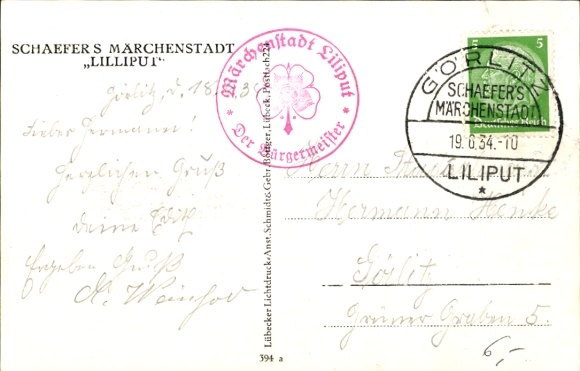 SCHAEFER S MÄRCHENSTADT
„LILLIPUT“
Görlitz, d. 18.
Lieber Hermann!
Herzlichen Gruß
deine Edith
Ergeben Gruß
Märchenstadt Liliput
* Der Bürgermeister *
Lübecker Lichtdruck-Anst. Schmidt & Gebr. Böttger, Lübeck, Postfach 224
394 a
5 5
Deutsches Reich
GÖRLITZ
SCHAEFER'S
MÄRCHENSTADT
19.6.34.-10
LILIPUT
*
Herrn
Hermann Henke
Görlitz
Grüner Graben 5.
6,-